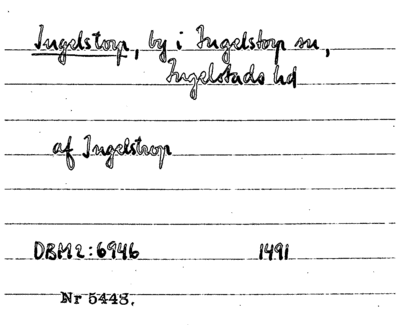 Ingelstorp, by i Ingelstorp sn,
Ingelstads hd
af Ingelstrop
DBM 2:6946 1491
Nr 5448.